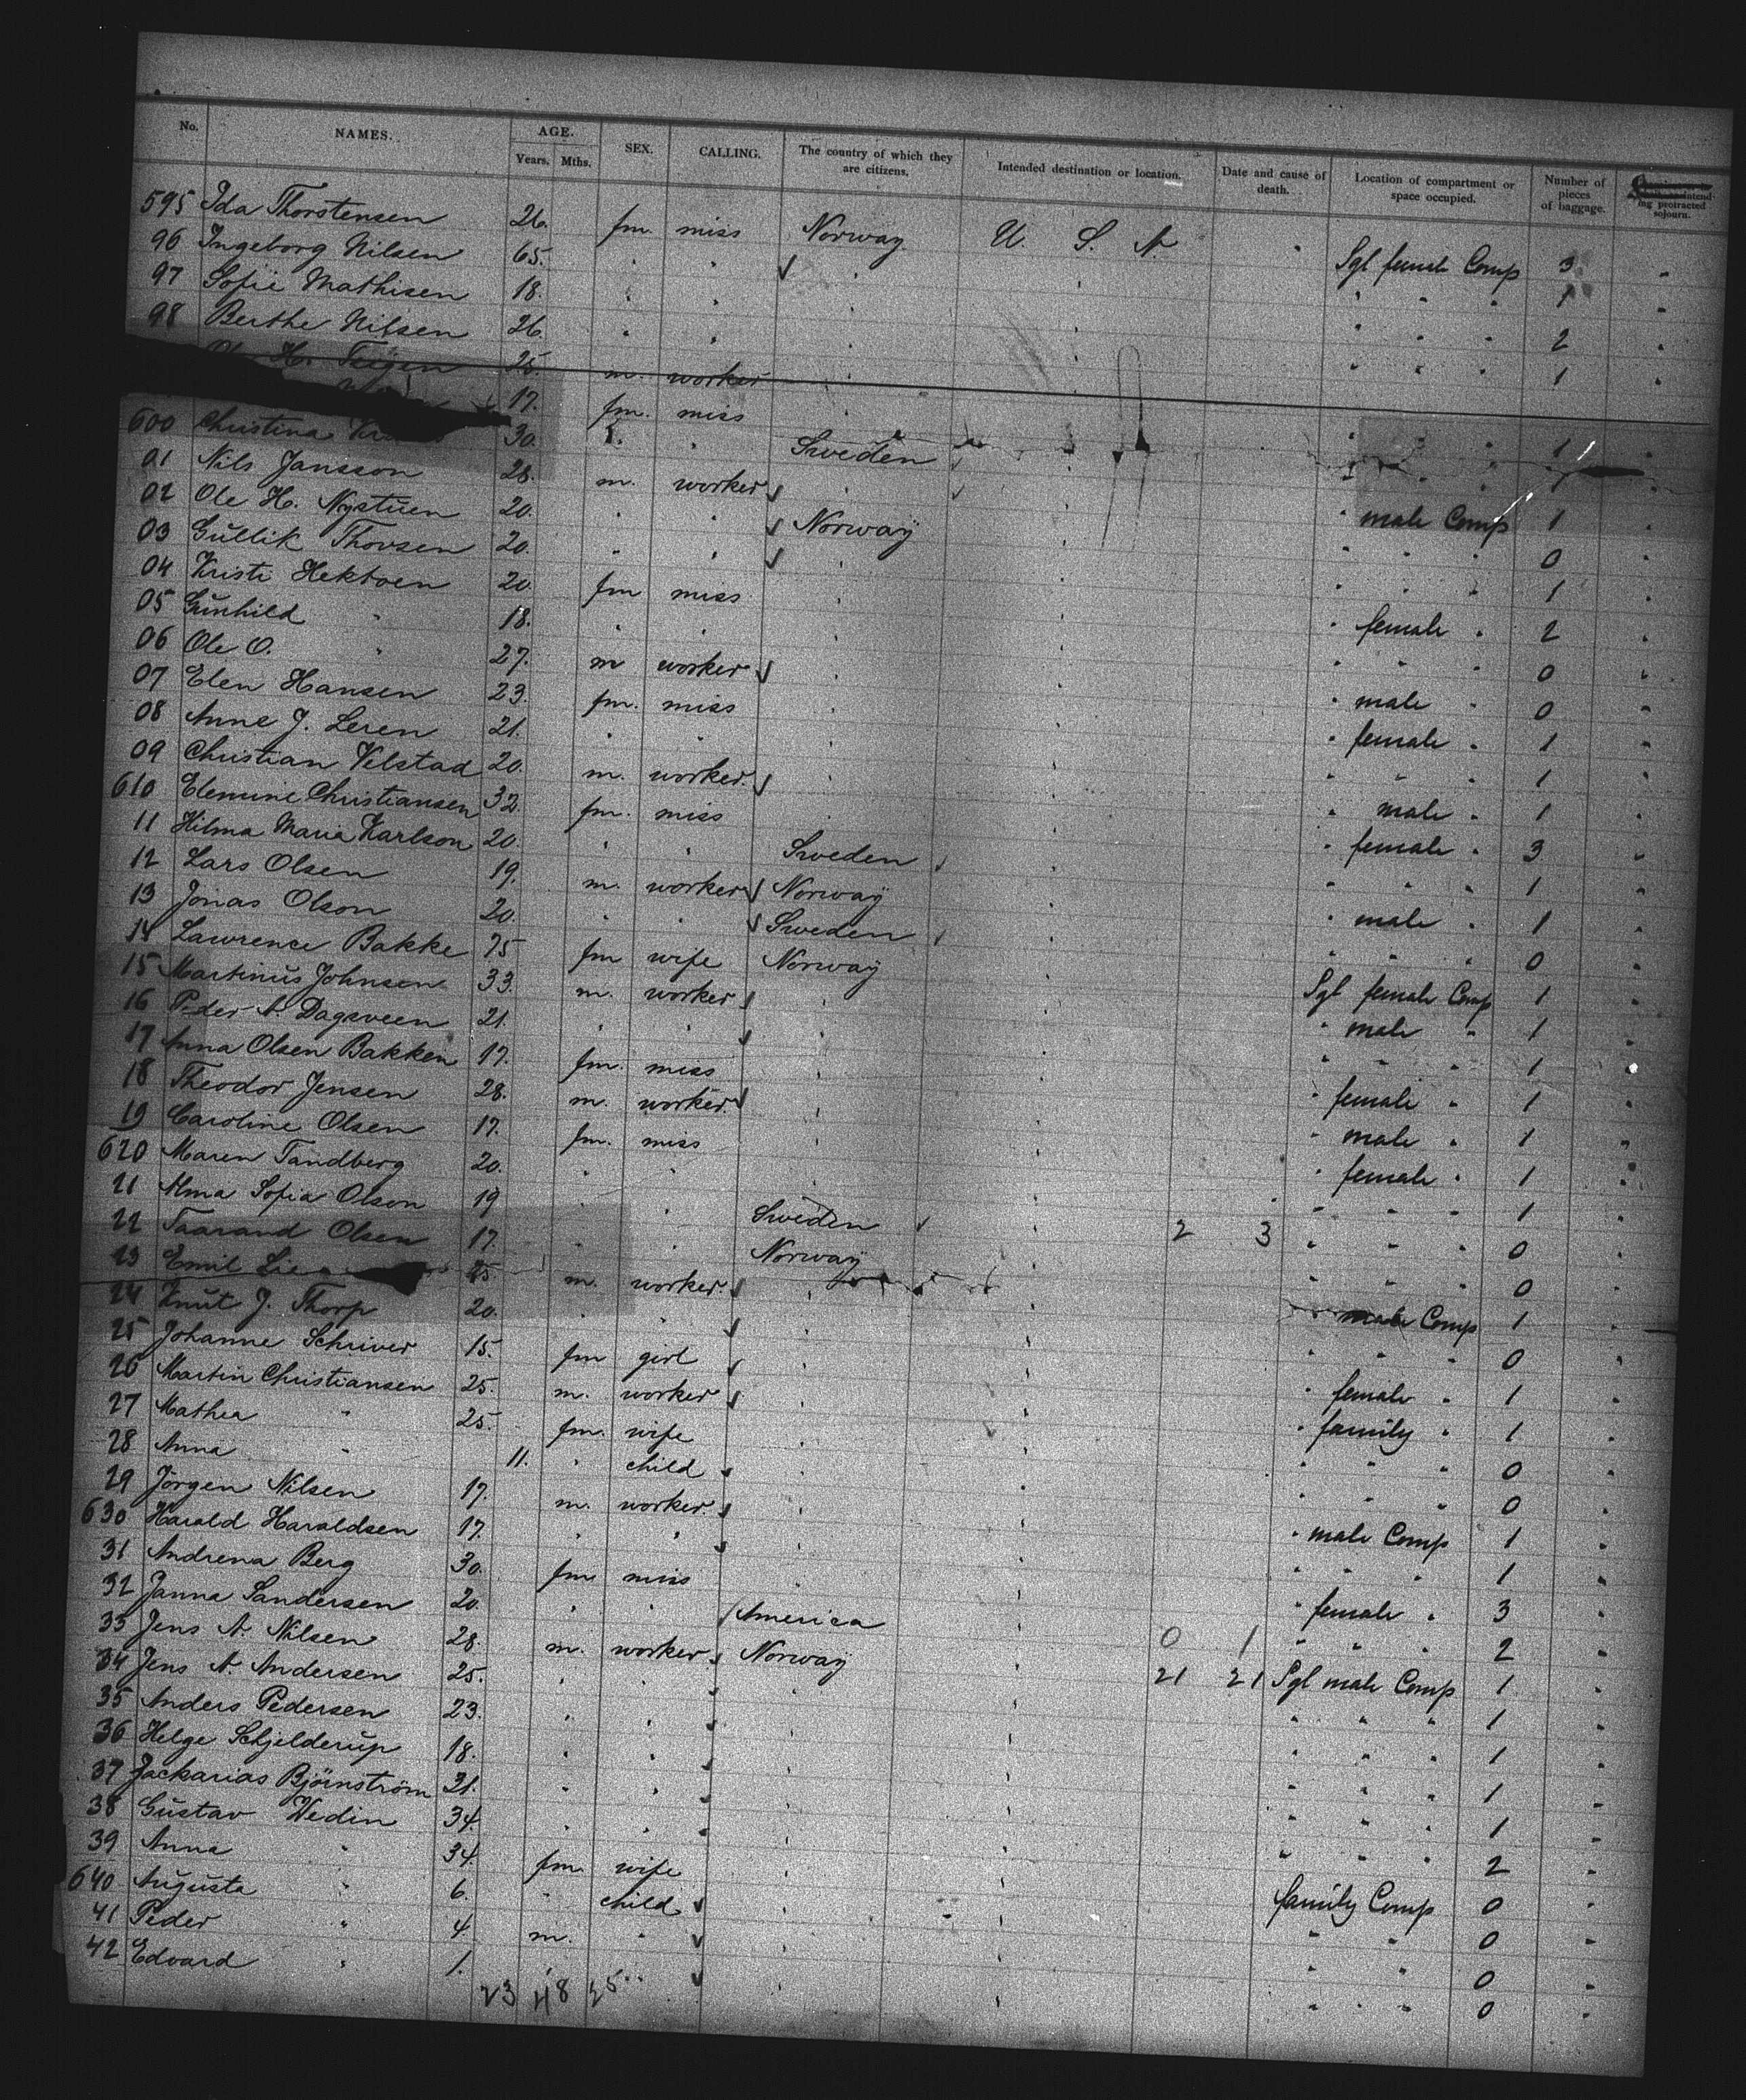 No. NAMES. AGE. Years. Mths. SEX. CALLING. The country of which they are citizens. Intended destination or location. Date and cause of death. Location of compartment or space occupied. Number of pieces of baggage. ing protracted sojourn.
595 Ida Thorstensen 26. fm. miss Norway U. S. A. Sgl female Comp 3
96 Ingeborg Nilsen 65. " " " " " " 1
97 Sofie Mathisen 18. " " " " " " 2
98 Berthe Nilsen 26. " " " " " " 1
H. Teigen 25. m. worker "
17. fm. miss " " " " 1
600 Christina 30. " " Sweden " " " 1
01 Nils Jansson 28. m. worker " " male Comp 1
02 Ole H. Nystuen 20. " " Norway " " " 0
03 Gullik Thovsen 20. " " " " " " 1
04 Kristi Hektoen 20. fm miss " " female " 2
05 Gunhild " 18. " " " " " " 0
06 Ole O. " 27. m worker " " male " 0
07 Elen Hansen 23. fm. miss " " female " 1
08 Anne J. Leren 21. " " " " " " 1
09 Christian Velstad 20. m. worker. " " male " 1
610 Elemine Christiansen 32. fm. miss " " female " 3
11 Hilma Maria Karlson 20. " " Sweden " " " 1
12 Lars Olsen 19. m. worker Norway " male " 1
13 Jonas Olson 20. " " Sweden " " " 0
14 Lawrence Bakke 25 fm wife Norway " Sgl female Comp 1
15 Martinus Johnsen 33. m. worker " " male " 1
16 Peder A. Dagsveen 21. " " " " " " 1
17 Anna Olsen Bakken 17. fm. miss " " female " 1
18 Theodor Jensen 28. m. worker. " " male " 1
19 Caroline Olsen 17. fm. miss " " female " 1
620 Maren Tandberg 20. " " " " " " 1
21 Alma Sofia Olson 19 " " Sweden " 2 3 " " " 0
22 Taarand Olsen 17. " " Norway " " " 0
23 Emil 25 m. worker. " " male Comp 1
24 Knut J. Thorp 20. " " " " " " 0
25 Johanne Schriver 15. fm girl " " female " 1
26 Martin Christiansen 25. m. worker " " family " 1
27 Mathea " 25. fm. wife " " " " 0
28 Anna " 11. " child " " " " 0
29 Jörgen Nilsen 17. m. worker. " " male Comp 1
630 Harald Haraldsen 17. " " " " " " 1
31 Andrena Berg 30. fm miss " " female " 3
32 Janna Sandersen 20. " " America " 0 1 " " " 2
33 Jens A. Nilsen 28. m. worker Norway " 21 21 Sgl male Comp 1
34 Jens A. Andersen 25. " " " " " " 1
35 Anders Pedersen 23. " " " " " " 1
36 Helge Schjelderup 18. " " " " " " 1
37 Zackarias Björnström 31. " " " " " " 1
38 Gustav Wedin 34. " " " " " " 2
39 Anna " 34. fm. wife " " family Comp 0
640 Augusta " 6. " child " " " " 0
41 Peder " 4. m. " " " " " 0
42 Edvard " 1. " " " " " 0
23 48 25